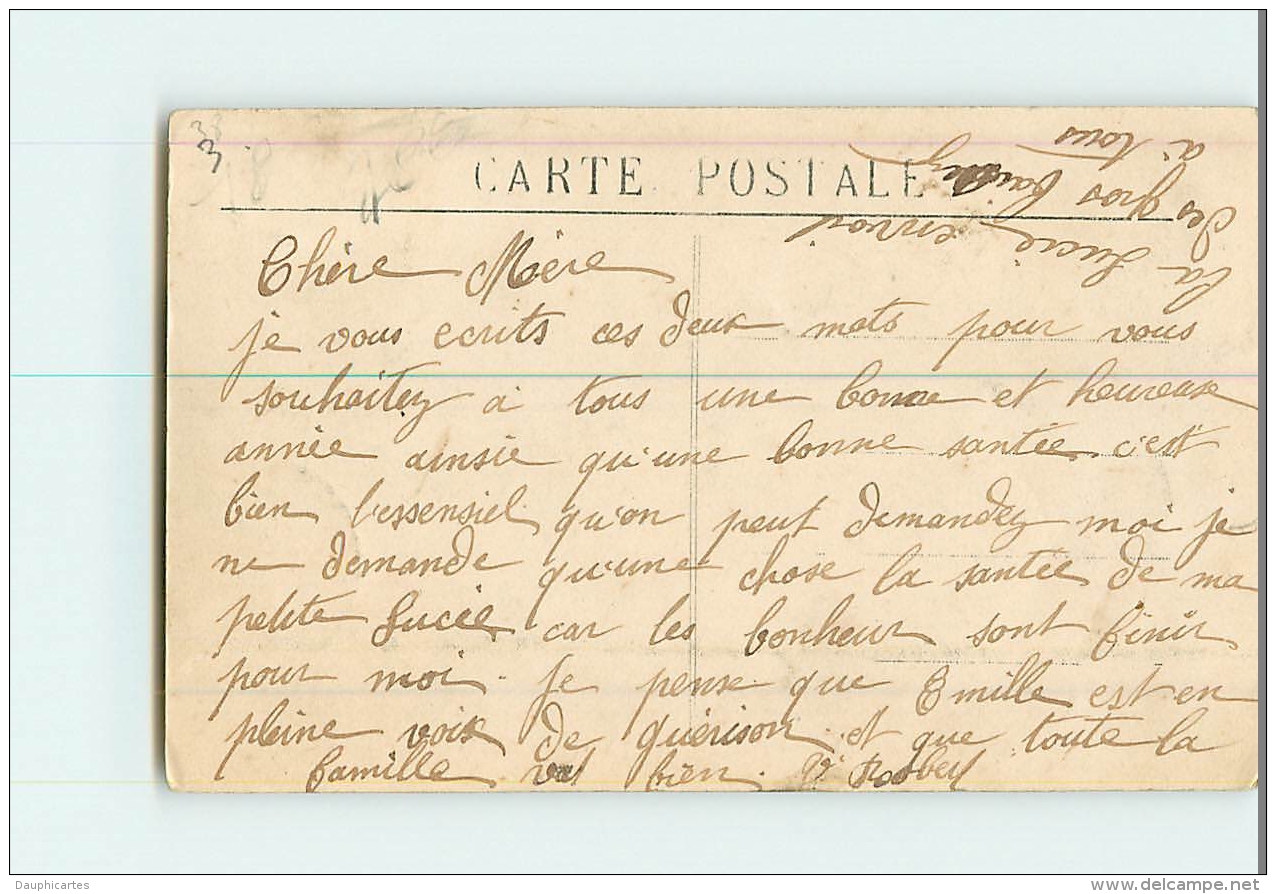 33
3
18
CARTE POSTALE
Chère Mère
je vous ecrits ces deux mots pour vous
souhaitez a tous une bonne et heureuse
année ainsie qu'une bonne santée c'est
bien l'essensiel qu'on peut demandez moi je
ne demande qu'une chose la santée de ma
petite Lucie car les bonheur sont finir
pour moi. Je pense que Emille est en
pleine voix de guérison et que toute la
famille vas bien.
la Lucie envoi
des gros
à tous
Dauphicartes
www.delcampe.net